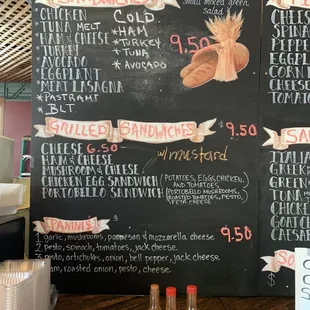 COLD
small mixed green
salad
CHICKEN
TUNA MELT
HAM & CHEESE
TURKEY
AVOCADO
EGGPLANT
MEAT LASAGNA
*PASTRAMI
* BLT
*HAM
*TURKEY
*TUNA
*AVOCADO
9.50
GRILLED SANDWICHES $9.50
CHEESE 6.50
HAM & CHEESE
MUSHROOM & CHEESE
CHICKEN EGG SANDWICH
PORTOBELLO SANDWICH
w/mustard
(POTATOES, EGGS, CHICKEN,
AND TOMATOES)
(PORTOBELLO MUSHROOMS,
ROASTED ONIONS, PESTO,
FETA CHEESE
PANINIS $ 9.50
1. garlic, mushrooms, parmesan & mozzarella cheese
2. pesto, spinach, tomatoes, jack cheese
3. pesto, artichokes, onion, bell pepper, jack cheese
roasted onion, pesto, cheese
CHEESE
SPIN
PEPPE
EGGPL
CORN
CHEESE
TOMAT
SA
ITALIA
GREEK
GREEN
TUNA
CHICK
GOAT
CAESA
SO
$